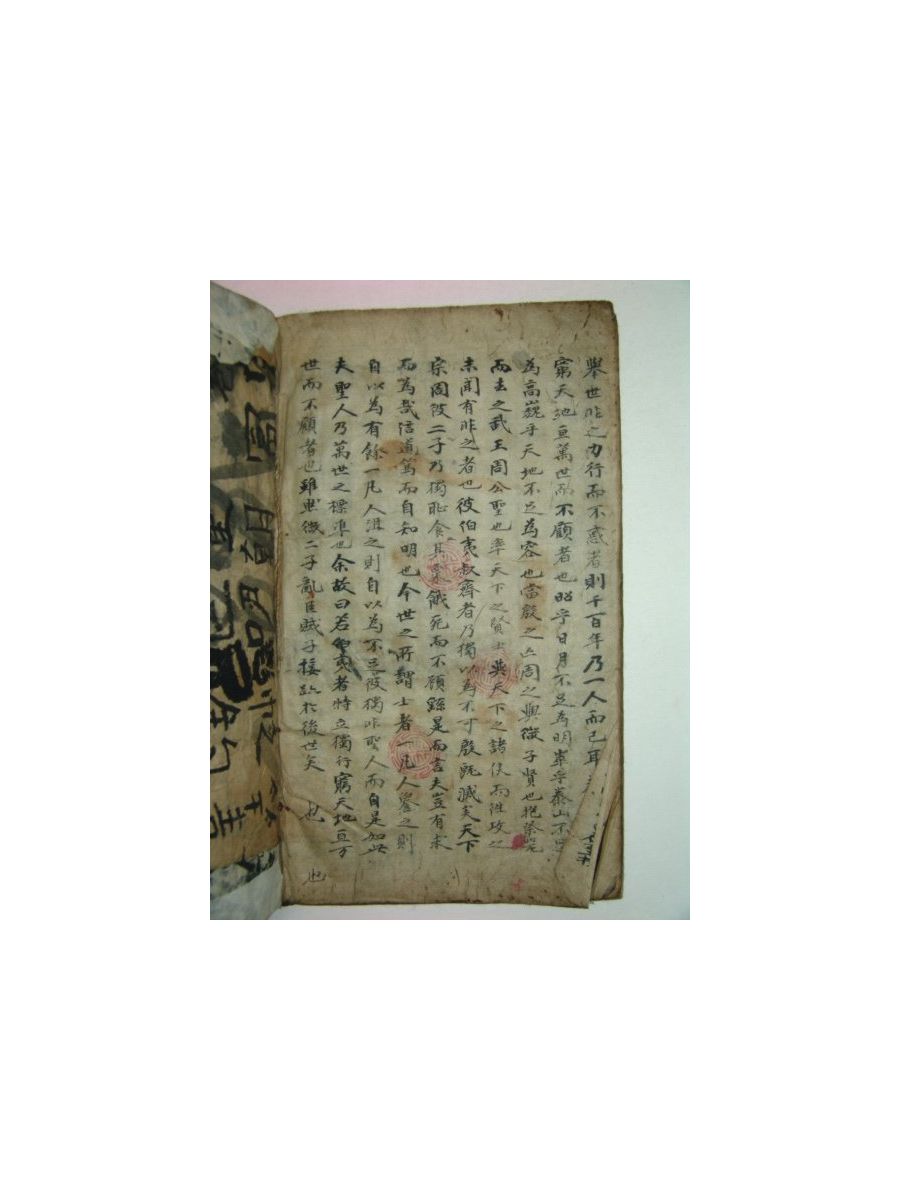 舉世非之力行而不惑者則千百年乃一人而已耳
窮天地亘萬世而不顧者也昭乎日月不足為明崒乎泰山不足
為高巍乎天地不足為容也當殷之亡周之興微子賢也抱祭器
而去之武王周公聖也率天下之賢士與天下之諸侯而往攻之
未聞有非之者也彼伯夷叔齊者乃獨以為不可殷既滅矣天下
宗周彼二子乃獨恥食其粟餓死而不顧繇是而言夫豈有求
而為哉信道篤而自知明也今世之所謂士者一凡人譽之則
自以為有餘一凡人沮之則自以為不足彼獨非聖人而自是如此
夫聖人乃萬世之標準也余故曰若伯夷者特立獨行窮天地亘万
世而不顧者也雖然微二子亂臣賊子接跡於後世矣
也
也